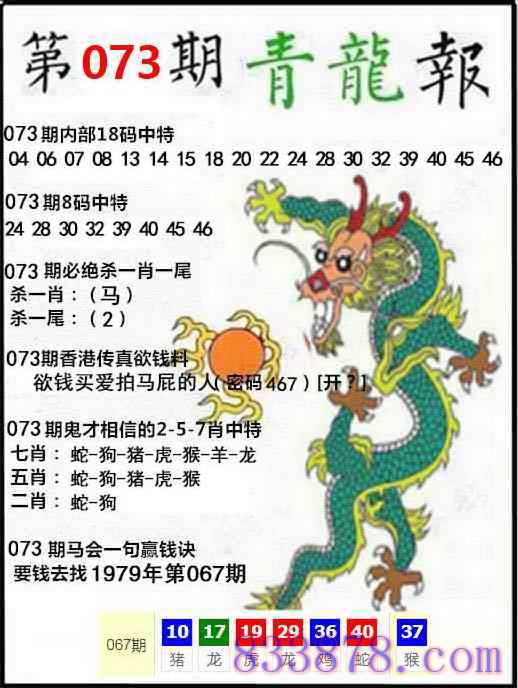 第073期 青龍報
073期内部18码中特
04 06 07 08 13 14 15 18 20 22 24 28 30 32 39 40 45 46
073期8码中特
24 28 30 32 39 40 45 46
073 期必绝杀一肖一尾
杀一肖:(马)
杀一尾:(2)
073期香港传真欲钱料
欲钱买爱拍马屁的人(密码467)[开?]
073期鬼才相信的2-5-7肖中特
七肖:蛇-狗-猪-虎-猴-羊-龙
五肖:蛇-狗-猪-虎-猴
二肖:蛇-狗
073 期马会一句赢钱诀
要钱去找1979年第067期
067期 10 17 19 29 36 40 37
猪 龙 虎 龙 鸡 蛇 猴
833878.com